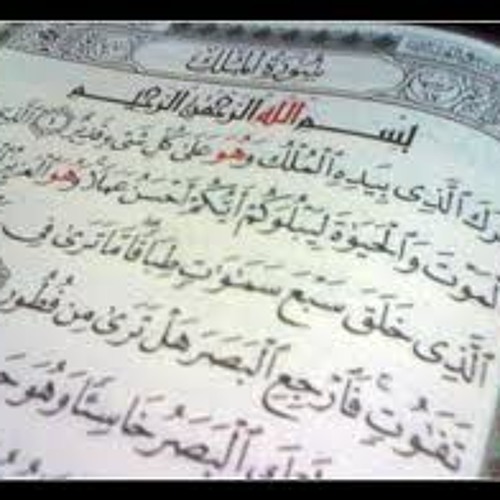 سُورَةُ الْمُلْكِ
بِسْمِ اللَّهِ الرَّحْمَٰنِ الرَّحِيمِ
الَّذِي بِيَدِهِ الْمُلْكُ وَهُوَ عَلَىٰ كُلِّ شَيْءٍ قَدِيرٌ
الْمَوْتَ وَالْحَيَوٰةَ لِيَبْلُوَكُمْ أَيُّكُمْ أَحْسَنُ عَمَلًا وَهُوَ
الَّذِي خَلَقَ سَبْعَ سَمَٰوَٰتٍ طِبَاقًا مَا تَرَىٰ فِي
تَفَٰوُتٍ فَارْجِعِ الْبَصَرَ هَلْ تَرَىٰ مِن فُطُورٍ
الْبَصَرُ خَاسِئًا وَهُوَ